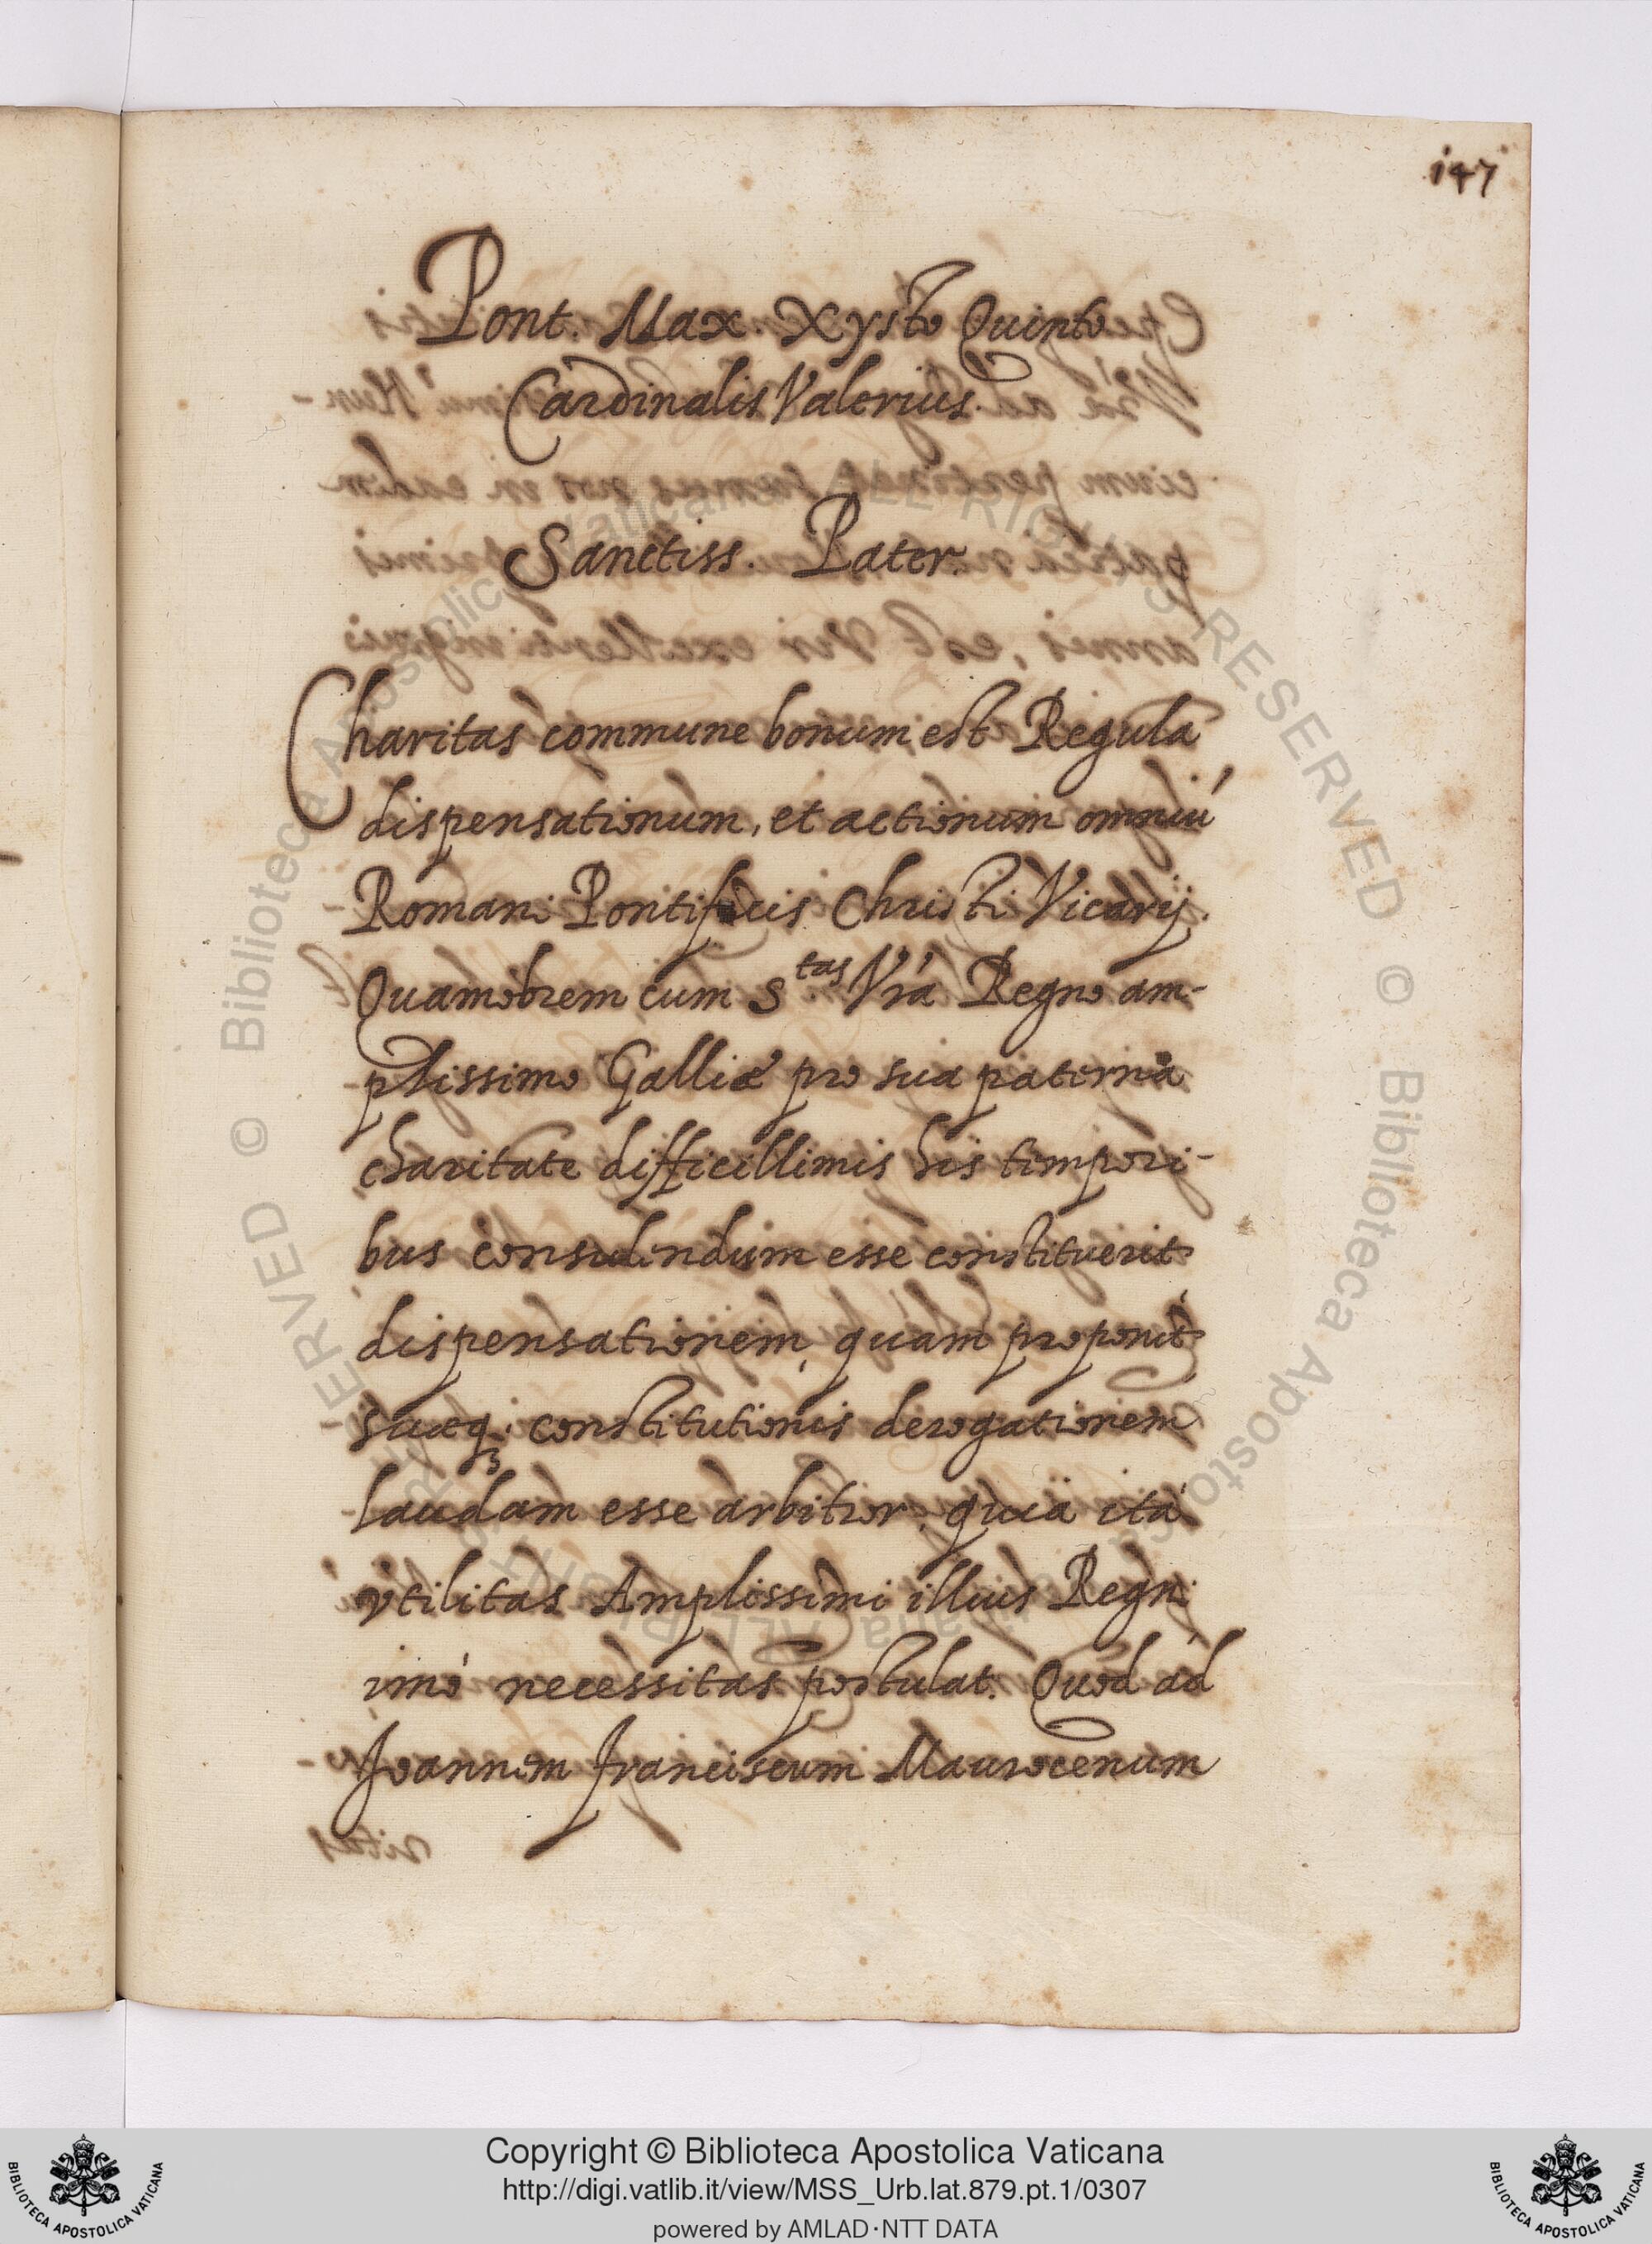 147
Pont. Max. Xysto Quinto
Cardinalis Valerius.
Sanctiss. Pater.
Charitas commune bonum est Regula
dispensationum, et actionum omniú
Romani Pontificis Christi Vicarij.
Quamobrem cum S.tas Vrá Regno am-
plissimo Galliæ pro sua paterna
charitate difficillimis his tempori-
bus consulendum esse constituerit
dispensationem, quam proponit
suæq; constitutionis derogationem
laudam esse arbitror, quia ita
vtilitas Amplissimi illius Regni
imó necessitas postulat. Quod ad
Joannem Franciscum Maurocenum
Copyright © Biblioteca Apostolica Vaticana
http://digi.vatlib.it/view/MSS_Urb.lat.879.pt.1/0307
powered by AMLAD·NTT DATA
BIBLIOTECA APOSTOLICA VATICANA
BIBLIOTECA APOSTOLICA VATICANA